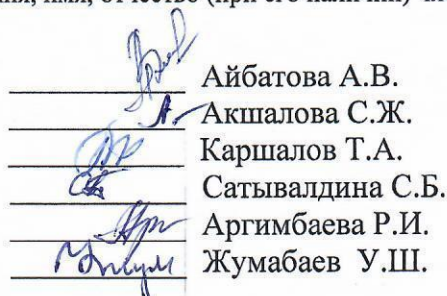 имя, отчество (при его наличии)
Айбатова А.В.
Акшалова С.Ж.
Каршалов Т.А.
Сатывалдина С.Б.
Аргимбаева Р.И.
Жумабаев У.Ш.